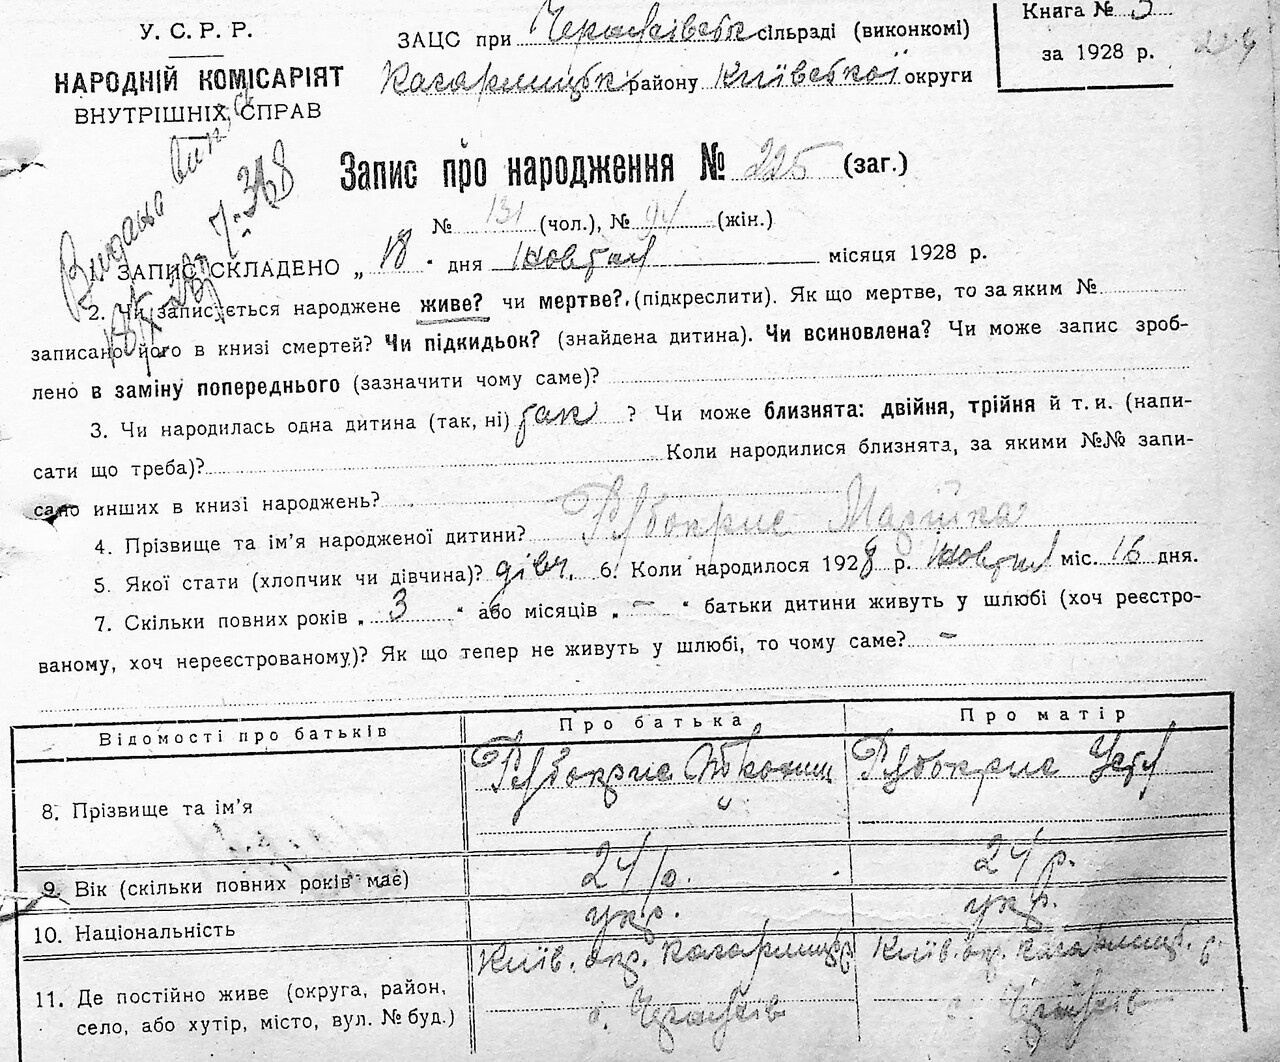 У. С. Р. Р.
НАРОДНІЙ КОМІСАРІЯТ
ВНУТРІШНІХ СПРАВ
ЗАЦС при сільраді (виконкомі)
Кагарлицьк району Київської округи
Книга № 3
за 1928 р.
24
Видано
Запис про народження № 225 (заг.)
№ 131 (чол.), № 94 (жін.)
ЗАПИС СКЛАДЕНО „ 18 “ дня жовтня місяця 1928 р.
2. Чи записується народжене живе? чи мертве? (підкреслити). Як що мертве, то за яким №
записано його в книзі смертей? Чи підкидьок? (знайдена дитина). Чи всиновлена? Чи може запис зроб-
лено в заміну попереднього (зазначити чому саме)?
3. Чи народилась одна дитина (так, ні) так ? Чи може близнята: двійня, трійня й т. и. (напи-
сати що треба)? Коли народилися близнята, за якими №№ запи-
сано инших в книзі народжень?
4. Прізвище та ім'я народженої дитини? Рябокрис Марійка
5. Якої стати (хлопчик чи дівчина)? дівч. 6. Коли народилося 1928 р. жовтня міс. 16 дня.
7. Скільки повних років „ 3 “ або місяців „ – “ батьки дитини живуть у шлюбі (хоч реєстро-
ваному, хоч нереєстрованому)? Як що тепер не живуть у шлюбі, то чому саме? –
Відомості про батьків Про батька Про матір
8. Прізвище та ім'я Рябокрис Рябокрис Устя
9. Вік (скільки повних років має) 24 р. 24 р.
10. Національність укр. укр.
11. Де постійно живе (округа, район, Київ. окр. Кагарлицьк р. Київ. окр. Кагарлицьк. р.
село, або хутір, місто, вул. № буд.) с. с.